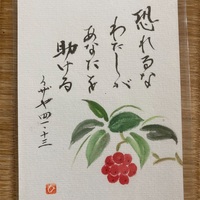 恐れるな
わたしが
あなたを
助ける
イザヤ四一・十三